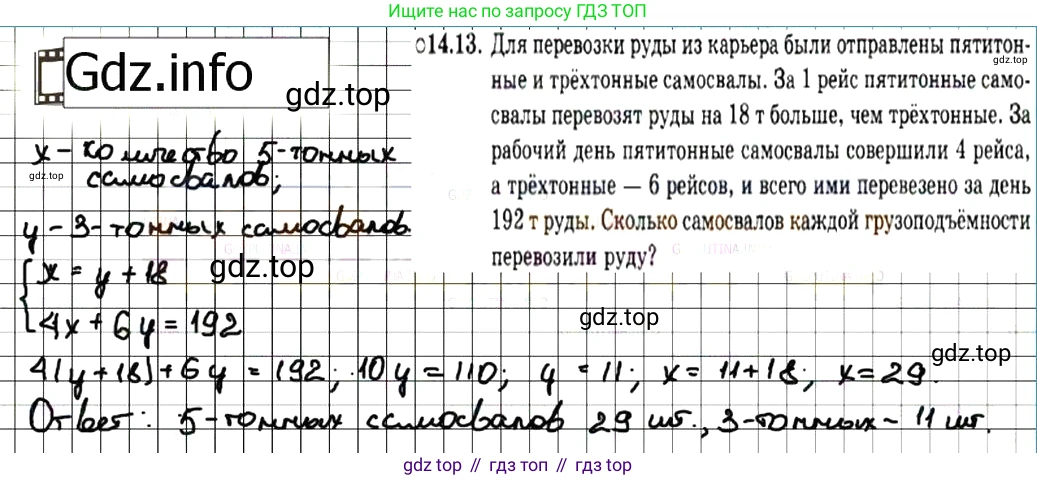 Ищите нас по запросу ГДЗ ТОП
Gdz.info
gdz.top
014.13. Для перевозки руды из карьера были отправлены пятитон-
ные и трёхтонные самосвалы. За 1 рейс пятитонные само-
свалы перевозят руды на 18 т больше, чем трёхтонные. За
рабочий день пятитонные самосвалы совершили 4 рейса,
а трёхтонные — 6 рейсов, и всего ими перевезено за день
192 т руды. Сколько самосвалов каждой грузоподъёмности
перевозили руду?
gdz.top
gdz.top
x - количество 5-тонных
самосвалов;
y - 3-тонных самосвалов.
x = y + 18
gdz.top
4x + 6y = 192
gdz.top
4(y + 18) + 6y = 192; 10y = 110; y = 11; x = 11 + 18; x = 29.
gdz.top
Ответ: 5-тонных самосвалов 29 шт., 3-тонных - 11 шт.
gdz top // гдз топ // gdz.top